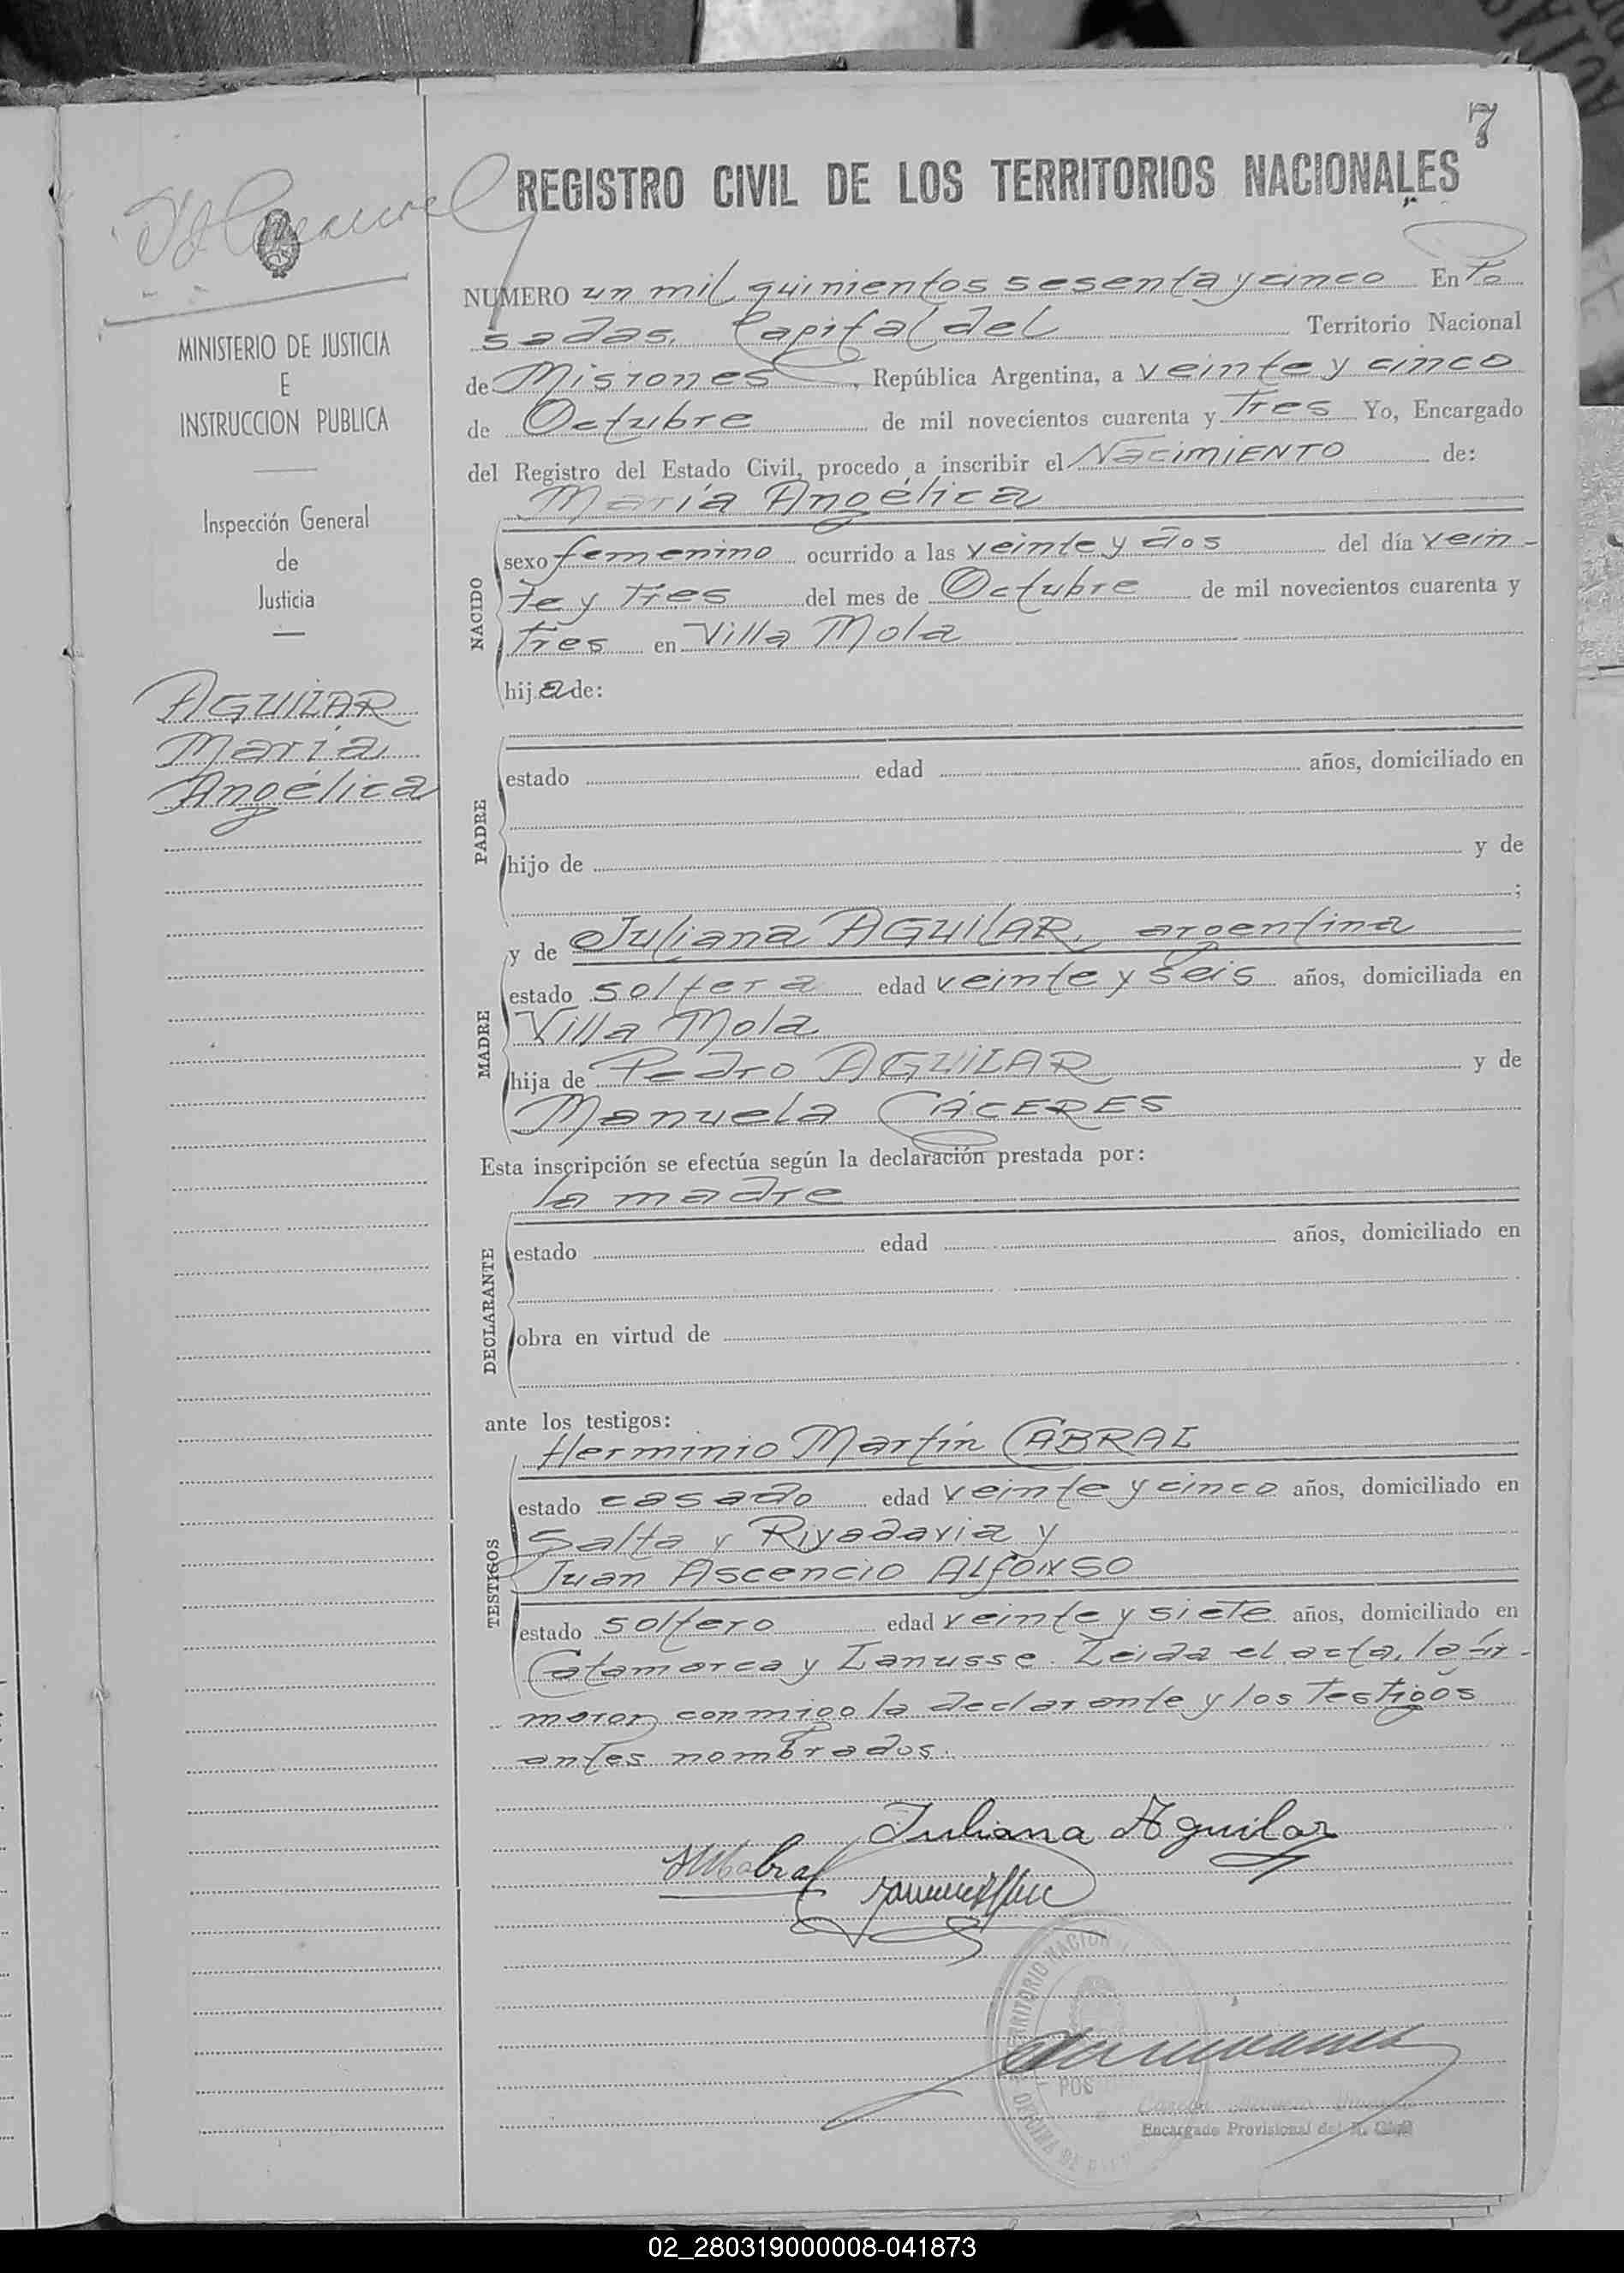 7
REGISTRO CIVIL DE LOS TERRITORIOS NACIONALES
MINISTERIO DE JUSTICIA
E
INSTRUCCION PUBLICA
Inspección General
de
Justicia
AGUILAR
María
Angélica
NUMERO un mil quinientos sesenta y cinco En Po
sadas, Capital del Territorio Nacional
de Misiones, República Argentina, a veinte y cinco
de Octubre de mil novecientos cuarenta y Tres Yo, Encargado
del Registro del Estado Civil, procedo a inscribir el NaciMIENTO de:
María Angélica
NACIDO
sexo femenino ocurrido a las veinte y dos del día vein-
te y Tres del mes de Octubre de mil novecientos cuarenta y
Tres en Villa Mola
hija de:
PADRE
estado edad años, domiciliado en
hijo de y de
;
y de Juliana AGUILAR, argentina
MADRE
estado soltera edad veinte y seis años, domiciliada en
Villa Mola
hija de Pedro AGUILAR y de
Manuela CÁCERES
Esta inscripción se efectúa según la declaración prestada por:
la madre
DECLARANTE
estado edad años, domiciliado en
obra en virtud de
ante los testigos:
Herminio Martín CABRAL
TESTIGOS
estado casado edad veinte y cinco años, domiciliado en
Salta y Rivadavia y
Juan Ascencio ALfONSO
estado soltero edad veinte y siete años, domiciliado en
Catamarca y Lanusse. Leída el acta, la fir-
maron conmigo la declarante y los Testigos
antes nombrados.
Juliana Aguilar
HMCabral
TERRITORIO NACIONAL
POS
OFICINA DE
Encargado Provisional del R. Civil
02_280319000008-041873